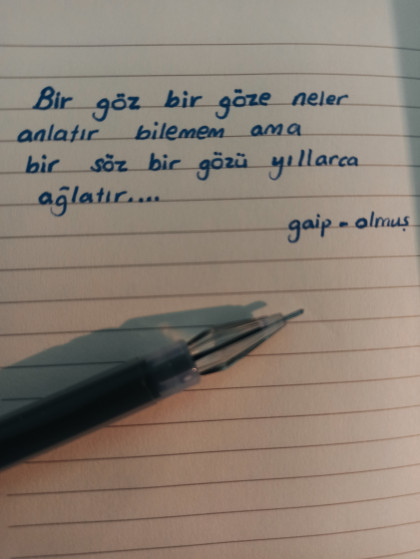 Bir göz bir göze neler
anlatır bilemem ama
bir söz bir gözü yıllarca
ağlatır....
gaip - olmuş